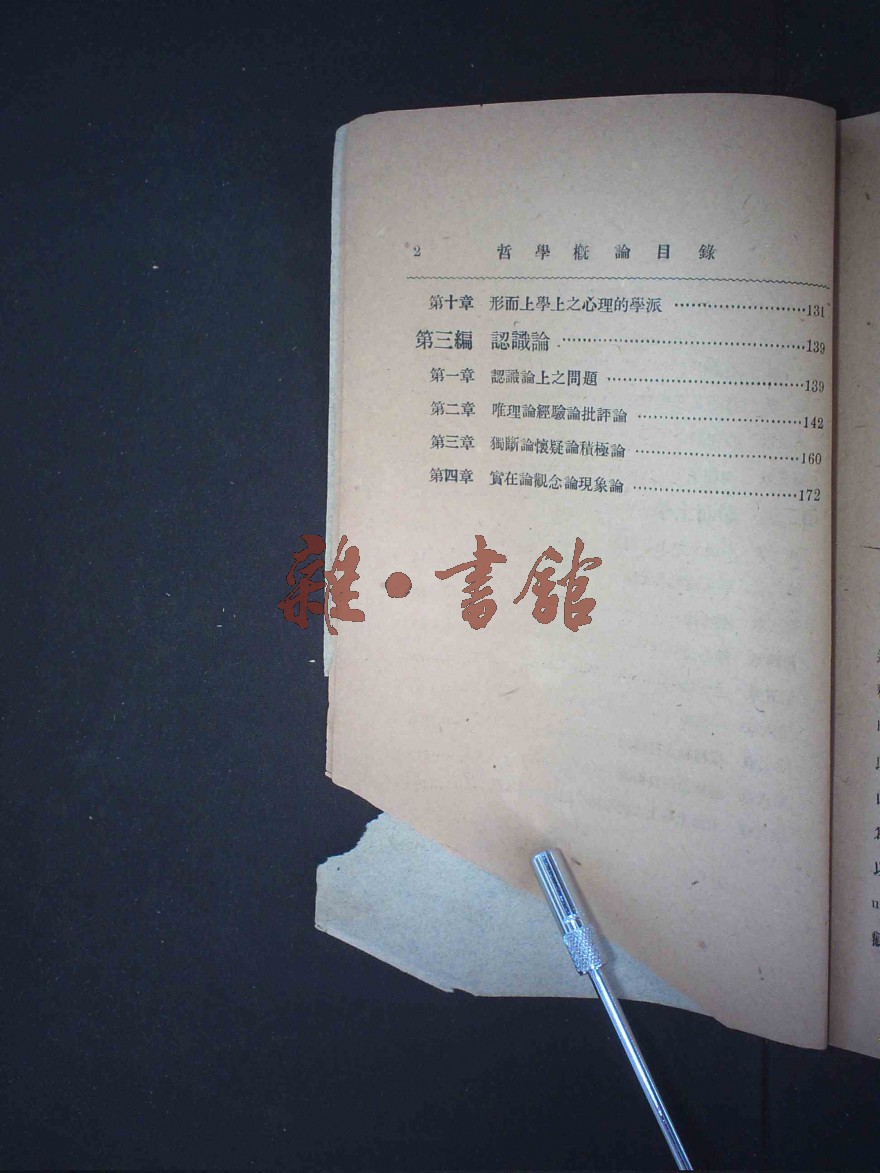 2 哲學概論目錄
第十章 形而上學上之心理的學派 ……………………131
第三編 認識論 ……………………………………139
第一章 認識論上之問題 ………………………………139
第二章 唯理論經驗論批評論 …………………………142
第三章 獨斷論懷疑論積極論 …………………………160
第四章 實在論觀念論現象論 …………………………172
雜·書館